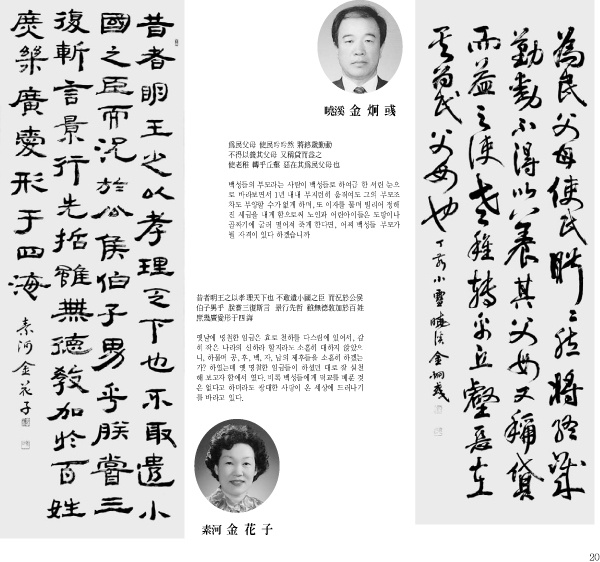 昔者明王之以孝理天下也不敢遺小
國之臣而況於公侯伯子男乎朕嘗三
復斯言景行先哲雖無德敎加於百姓
庶幾廣愛形于四海
素河 金花子
曉溪 金炯彧
爲民父母 使民盻盻然 將終歲勤動
不得以養其父母 又稱貸而益之
使老稚 轉乎丘壑 惡在其爲民父母也
백성들의 부모라는 사람이 백성들로 하여금 한 서린 눈으
로 바라보면서 1년 내내 부지런히 움직여도 그의 부모조
차도 부양할 수가 없게 하며, 또 이자를 물며 빌리어 정해
진 세금을 내게 함으로써 노인과 어린아이들은 도랑이나
골짜기에 굴러 떨어져 죽게 한다면, 어찌 백성들 부모가
될 자격이 있다 하겠습니까
昔者明王之以孝理天下也 不敢遺小國之臣 而況於公侯
伯子男乎 朕嘗三復斯言 景行先哲 雖無德敎加於百姓
庶幾廣愛形于四海
옛날에 명철한 임금은 효로 천하를 다스림에 있어서, 감
히 작은 나라의 신하라 할지라도 소홀히 대하지 않았으
니, 하물며 공, 후, 백, 자, 남의 제후들을 소홀히 하겠는
가? 하였는데 옛 명철한 임금들이 하였던 대로 잘 실천
해 보고자 함에서 였다. 비록 백성들에게 덕교를 베푼 것
은 없다고 하더라도 광대한 사랑이 온 세상에 드러나기
를 바라고 있다.
素河 金花子
為民父母使民盻〻然將終歲
勤動不得以養其父母又稱貸
而益之使老稚轉乎丘壑惡在
其為民父母也 丁亥小雪 曉溪 金炯彧
20